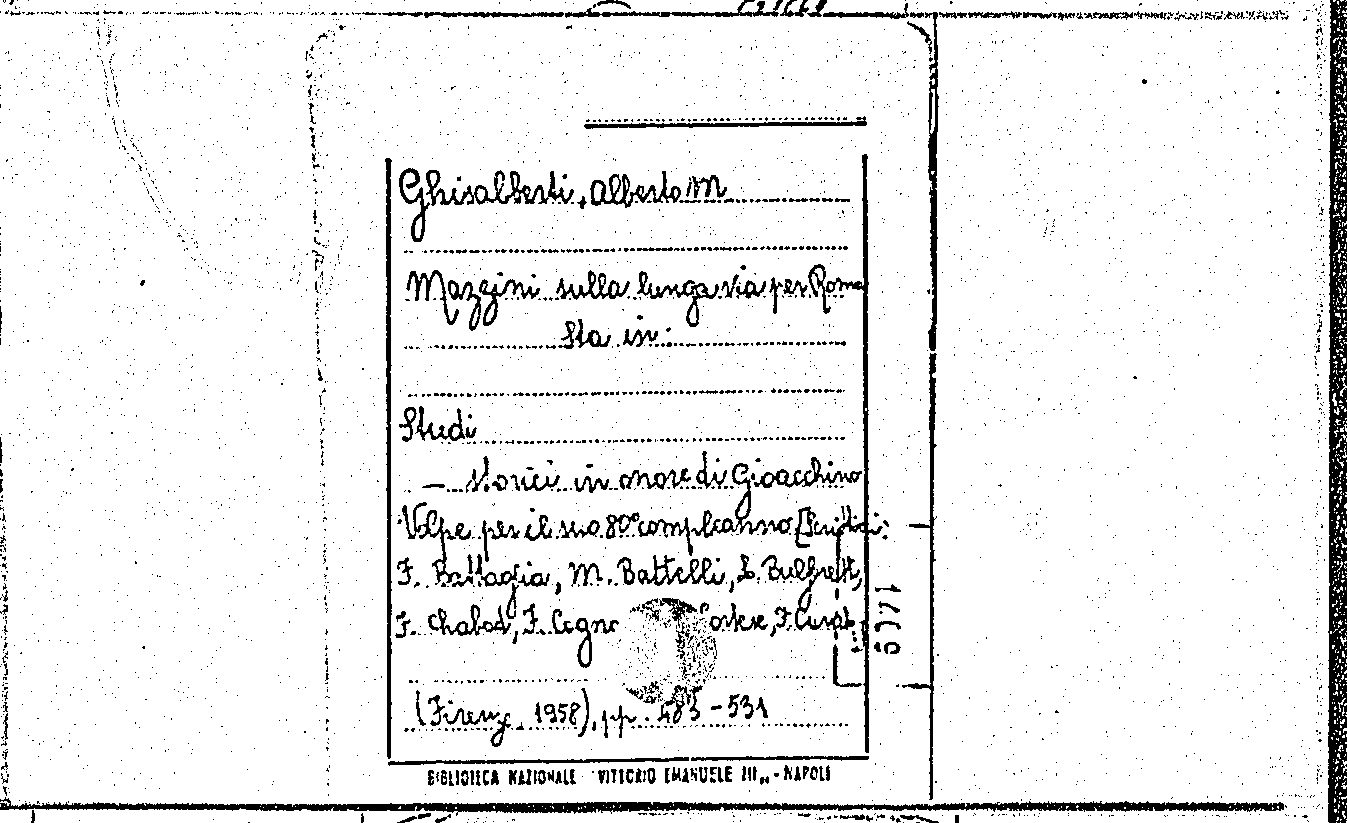 Ghisalberti, Alberto M
Mazzini sulla lunga via per Roma
Sta in:
Studi
— storici in onore di Gioacchino
Volpe per il suo 80° compleanno [Scritti di:
F. Battaglia, M. Battelli, L. Bulferetti,
F. Chabod, F. Cogna ortese, F. Curat
(Firenze, 1958), pp. 483-531
BIBLIOTECA NAZIONALE "VITTORIO EMANUELE III" - NAPOLI